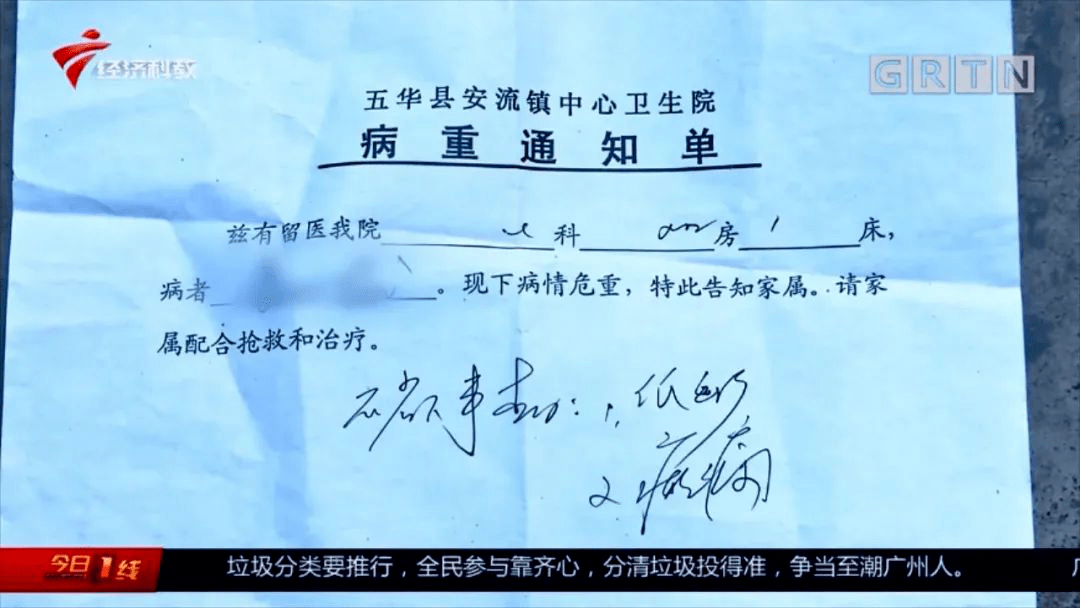 经济科教
GRTN
五华县安流镇中心卫生院
病重通知单
兹有留医我院 科 房 1 床，
病者 。现下病情危重，特此告知家属。请家
属配合抢救和治疗。
1. 低血
2. 癫痫
今日1线
垃圾分类要推行，全民参与靠齐心，分清垃圾投得准，争当至潮广州人。